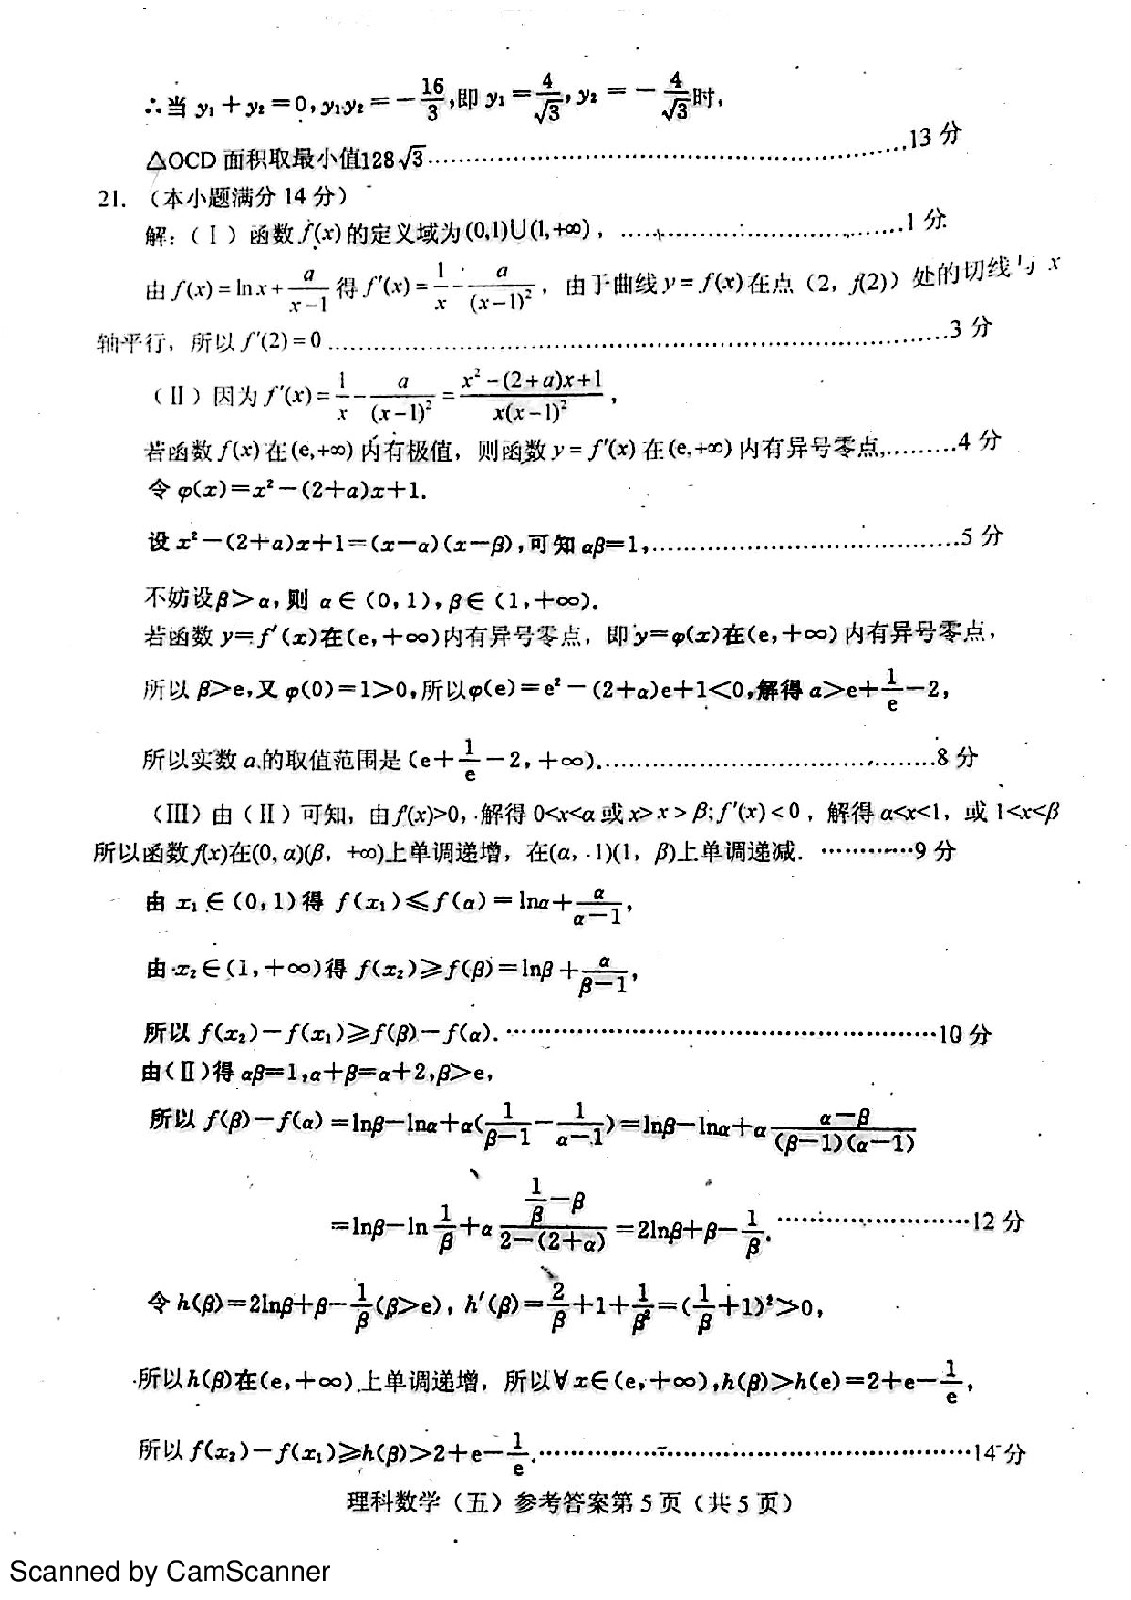 ∴当 y₁+y₂=0,y₁y₂=-16/3,即 y₁=4/√3,y₂=-4/√3时,
△OCD 面积取最小值128√3……………………………………13 分
21.（本小题满分 14 分）
解:（Ⅰ）函数 f(x) 的定义域为 (0,1)∪(1,+∞)，……………………1 分
由 f(x)=lnx+a/(x-1) 得 f′(x)=1/x-a/(x-1)²，由于曲线 y=f(x) 在点（2，f(2)）处的切线与 x
轴平行，所以 f′(2)=0……………………………………3 分
（Ⅱ）因为 f′(x)=1/x-a/(x-1)²=(x²-(2+a)x+1)/(x(x-1)²)，
若函数 f(x) 在 (e,+∞) 内有极值，则函数 y=f′(x) 在 (e,+∞) 内有异号零点,………4 分
令 φ(x)=x²-(2+a)x+1.
设 x²-(2+a)x+1=(x-α)(x-β),可知 αβ=1,……………………………5 分
不妨设β>α,则 α∈(0,1),β∈(1,+∞).
若函数 y=f′(x)在(e,+∞)内有异号零点，即 y=φ(x)在(e,+∞)内有异号零点，
所以 β>e,又 φ(0)=1>0,所以φ(e)=e²-(2+a)e+1<0,解得 a>e+1/e-2,
所以实数 a 的取值范围是 (e+1/e-2,+∞).……………………………8 分
（Ⅲ）由（Ⅱ）可知，由 f′(x)>0, 解得 0<x<α 或 x>x>β;f′(x)<0，解得 α<x<1，或 1<x<β
所以函数 f(x)在(0, α)(β，+∞)上单调递增，在(α，1)(1，β)上单调递减. …………9 分
由 x₁∈(0,1)得 f(x₁)≤f(α)=lnα+α/(α-1),
由 x₂∈(1,+∞)得 f(x₂)≥f(β)=lnβ+α/(β-1),
所以 f(x₂)-f(x₁)≥f(β)-f(α). ……………………………………10 分
由(Ⅱ)得 αβ=1,α+β=α+2,β>e,
所以 f(β)-f(α)=lnβ-lnα+α(1/(β-1)-1/(α-1))=lnβ-lnα+α(α-β)/((β-1)(α-1))
=lnβ-ln1/β+α(1/β-β)/(2-(2+α))=2lnβ+β-1/β. ……………………12 分
令 h(β)=2lnβ+β-1/β(β>e)，h′(β)=2/β+1+1/β²=(1/β+1)²>0,
所以 h(β)在(e,+∞)上单调递增，所以∀x∈(e,+∞),h(β)>h(e)=2+e-1/e,
所以 f(x₂)-f(x₁)≥h(β)>2+e-1/e.……………………………………14 分
理科数学（五）参考答案第 5 页（共 5 页）
Scanned by CamScanner